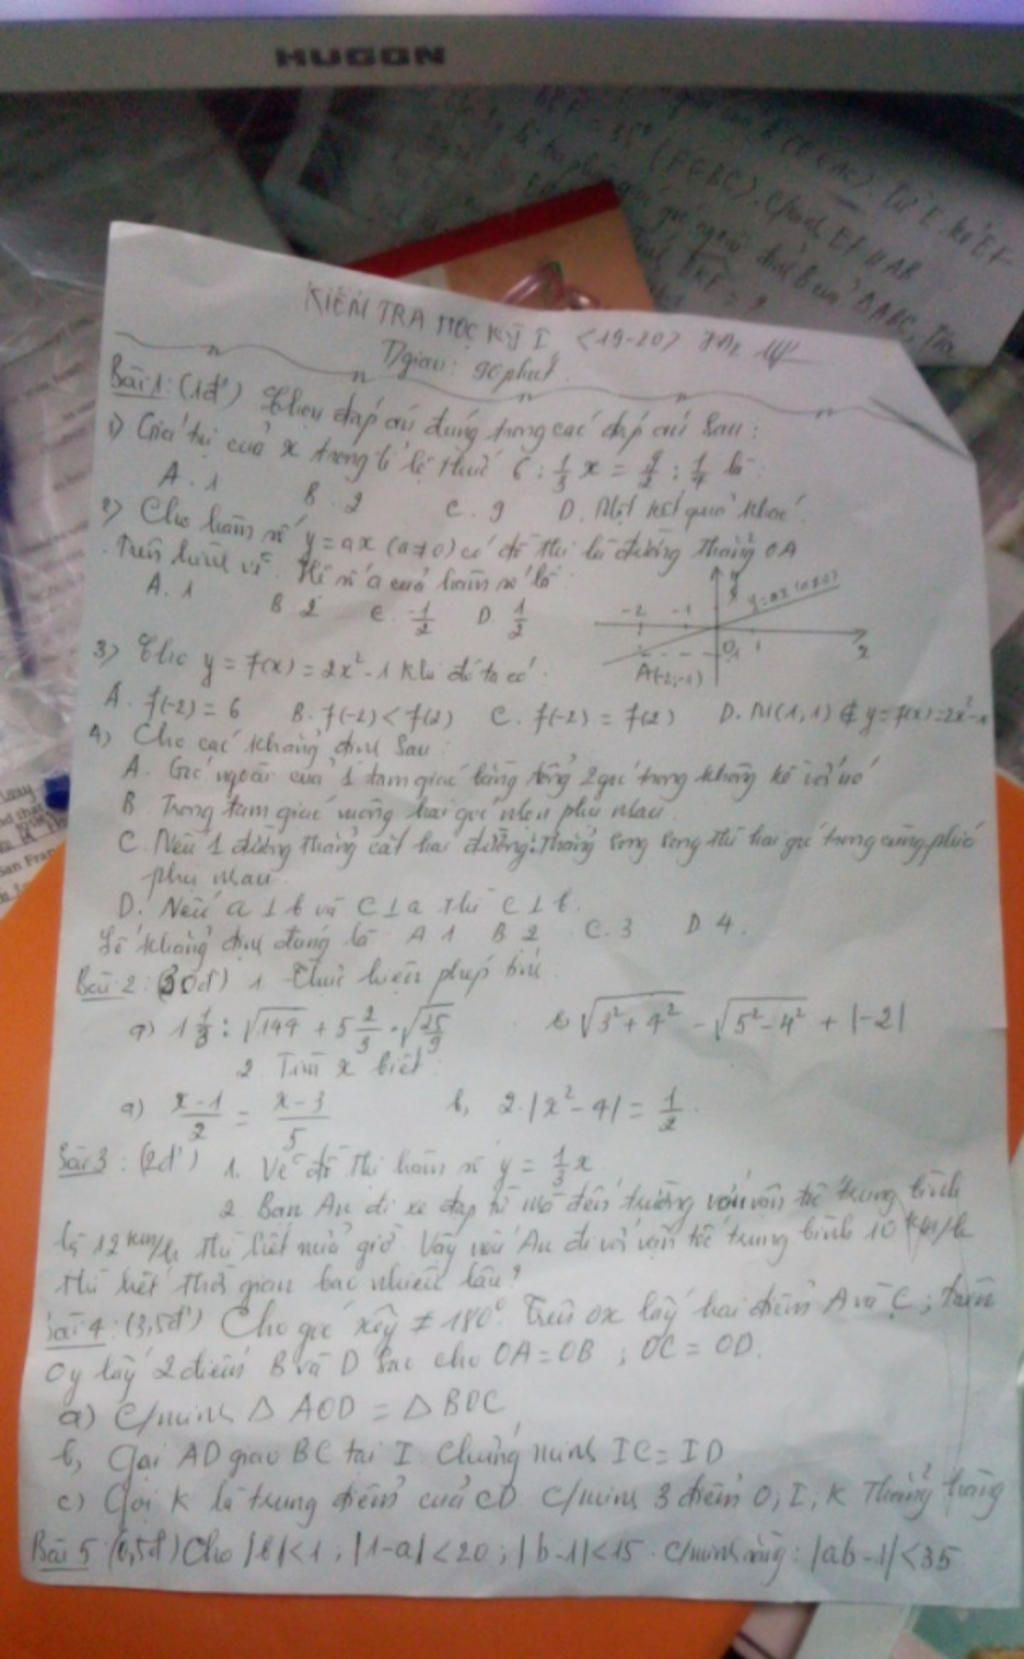 HUGON
KIỂM TRA HỌC KỲ I <19-20> 7A2
T/gian: 90 phút.
Bài 1: (1đ) Chọn đáp án đúng trong các đáp án sau:
1) Giá trị của x trong tỉ lệ thức 6 : 1/3 x = 9/2 : 1/4 là:
A. 1 B. 2 C. 9 D. Một kết quả khác.
2) Cho hàm số y = ax (a≠0) có đồ thị là đường thẳng OA
Trên hình vẽ. Hệ số a của hàm số là:
A. 1 B 2 C. -1/2 D. 1/2
y y=ax (a≠0)
-2 -1 O 1 x
-1
A(-2;-1)
3) Cho y = f(x) = 2x² - 1 Khi đó ta có:
A. f(-2) = 6 B. f(-2) < f(2) C. f(-2) = f(2) D. M(1,1) ∉ y = f(x) = 2x²-1
4) Cho các khẳng định sau:
A. Góc ngoài của 1 tam giác bằng tổng 2 góc trong không kề với nó
B Trong tam giác vuông hai góc nhọn phụ nhau.
C. Nếu 1 đường thẳng cắt hai đường thẳng song song thì hai góc trong cùng phía
phụ nhau.
D. Nếu a ⊥ b và c ⊥ a thì c ⊥ b.
Số khẳng định đúng là A 1 B 2 C. 3 D 4.
Bài 2: (3đ) 1 Thực hiện phép tính.
a) 1 1/3 : √144 + 5 2/3 · √25/9 b, √3²+4² - √5²-4² + |-2|
2. Tìm x biết:
a) x-1/2 = x-3/5 b, 2.|x²-4| = 1/2.
Bài 3: (2đ) 1. Vẽ đồ thị hàm số y = 1/3 x
2. Bạn An đi xe đạp từ nhà đến trường với vận tốc trung bình
là 12 km/h thì hết nửa giờ. Vậy nếu An đi với vận tốc trung bình 10 km/h
thì hết thời gian bao nhiêu lâu?
Bài 4: (3,5đ) Cho góc xôy ≠ 180°. Trên Ox lấy hai điểm A và C; trên
Oy lấy 2 điểm B và D sao cho OA = OB ; OC = OD.
a) C/minh △ AOD = △ BOC
b, Gọi AD giao BC tại I. Chứng minh IC = ID
c) Gọi K là trung điểm của CD. C/minh 3 điểm O, I, K thẳng hàng
Bài 5: (0,5đ) Cho |b| < 1 ; |1-a| < 20 ; |b-1| < 15. C/minh rằng: |ab-1| < 35